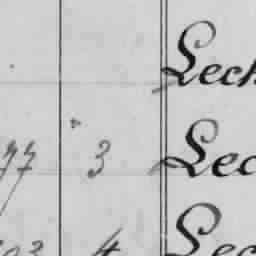 Lech
77 3 Lec
4 Lec